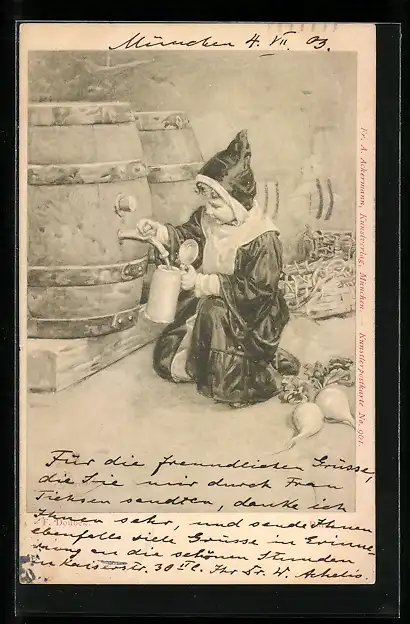 München 4. VII. 03.
Fr. A. Ackermann, Kunstverlag, München. – Künstlerpostkarte No. 901.
Für die freundlichen Grüsse,
die Sie mir durch Frau
sandten, danke ich
Ihnen sehr, und sende Ihnen
F. Doubek
ebenfalls viele Grüsse in Erinne-
rung an die schönen Stunden
in Kaiserstr. 30 II l. Ihr Dr. W. Achelis.